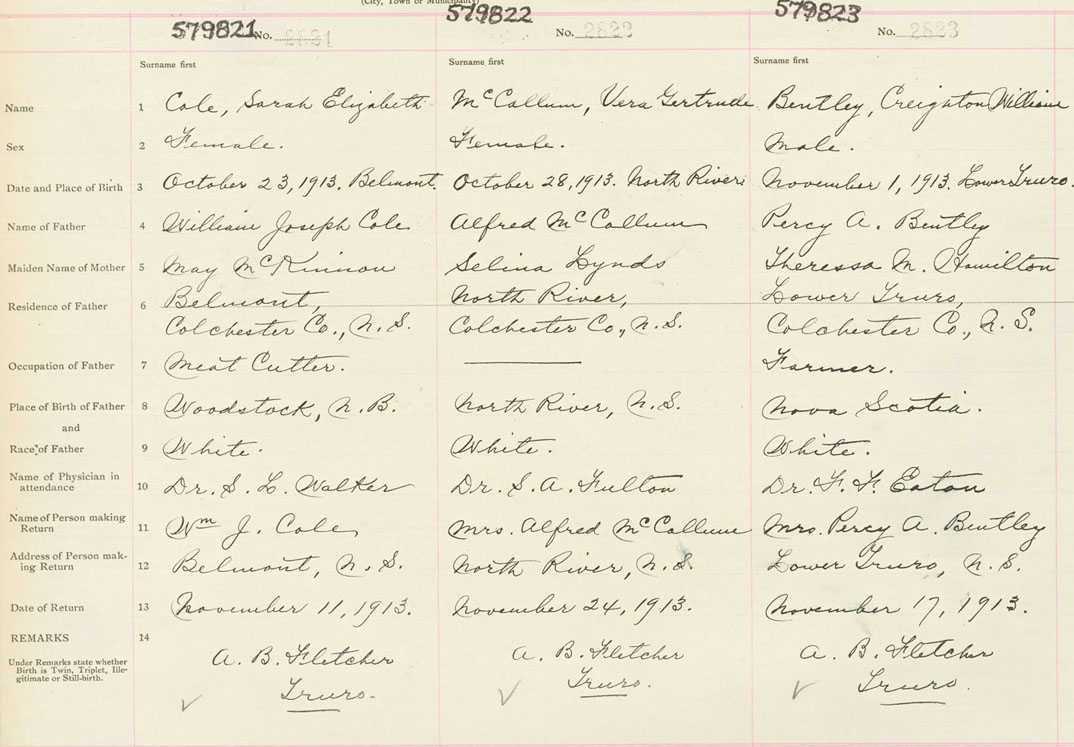 (City, Town or Municipality)
579821 No. 2821 579822 No. 2822 579823 No. 2823
Surname first Surname first Surname first
Name 1 Cole, Sarah Elizabeth McCallum, Vera Gertrude Bentley, Creighton William
Sex 2 Female. Female. Male.
Date and Place of Birth 3 October 23, 1913. Belmont. October 28, 1913. North River November 1, 1913. Lower Truro.
Name of Father 4 William Joseph Cole Alfred McCallum Percy A. Bentley
Maiden Name of Mother 5 May McKinnon Selina Lynds Theressa M. Hamilton
Residence of Father 6 Belmont, North River, Lower Truro,
Colchester Co., N.S. Colchester Co., N.S. Colchester Co., N.S.
Occupation of Father 7 Meat Cutter. Farmer.
Place of Birth of Father 8 Woodstock, N.B. North River, N.S. Nova Scotia.
and
Race of Father 9 White. White. White.
Name of Physician in attendance 10 Dr. S. L. Walker Dr. S. A. Fulton Dr. F. F. Eaton
Name of Person making Return 11 Wm J. Cole Mrs. Alfred McCallum Mrs. Percy A. Bentley
Address of Person mak-
ing Return 12 Belmont, N.S. North River, N.S. Lower Truro, N.S.
Date of Return 13 November 11, 1913. November 24, 1913. November 17, 1913.
REMARKS 14
Under Remarks state whether
Birth is Twin, Triplet, Ille-
gitimate or Still-birth.
A. B. Fletcher A. B. Fletcher A. B. Fletcher
Truro. Truro. Truro.